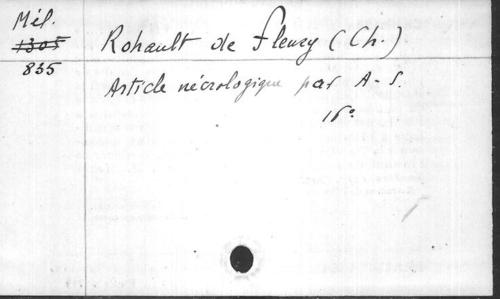 Mél.
1305
835
Rohault de Fleury (Ch.)
Article nécrologique par A-S.
16°